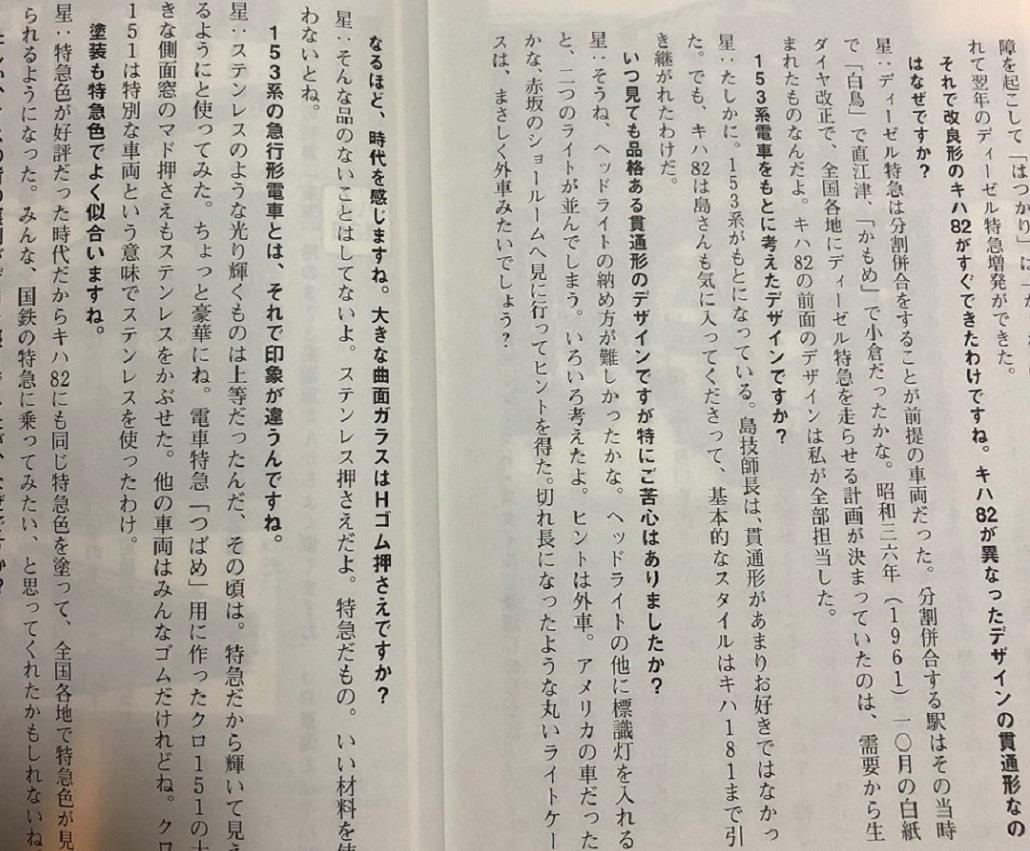 障を起こして「はつかり」は
れて翌年のディーゼル特急増発ができた。
それで改良形のキハ82がすぐできたわけですね。キハ82が異なったデザインの貫通形なの
はなぜですか?
星:ディーゼル特急は分割併合をすることが前提の車両だった。分割併合する駅はその当時
で「白鳥」で直江津、「かもめ」で小倉だったかな。昭和三六年(1961)一〇月の白紙
ダイヤ改正で、全国各地にディーゼル特急を走らせる計画が決まっていたのは、需要から生
まれたものなんだよ。キハ82の前面のデザインは私が全部担当した。
153系電車をもとに考えたデザインですか?
星:たしかに。153系がもとになっている。島技師長は、貫通形があまりお好きではなかっ
た。でも、キハ82は島さんも気に入ってくださって、基本的なスタイルはキハ181まで引
き継がれたわけだ。
いつ見ても品格ある貫通形のデザインですが特にご苦心はありましたか?
星:そうね、ヘッドライトの納め方が難しかったかな。ヘッドライトの他に標識灯を入れる
と、二つのライトが並んでしまう。いろいろ考えたよ。ヒントは外車。アメリカの車だった
かな、赤坂のショールームへ見に行ってヒントを得た。切れ長になったような丸いライトケー
スは、まさしく外車みたいでしょう?
なるほど、時代を感じますね。大きな曲面ガラスはHゴム押さえですか?
星:そんな品のないことはしてないよ。ステンレス押さえだよ。特急だもの。いい材料を使
わないとね。
153系の急行形電車とは、それで印象が違うんですね。
星:ステンレスのような光り輝くものは上等だったんだ、その頃は。特急だから輝いて見え
るようにと使ってみた。ちょっと豪華にね。電車特急「つばめ」用に作ったクロ151の大
きな側面窓のマド押さえもステンレスをかぶせた。他の車両はみんなゴムだけれどね。クロ
151は特別な車両という意味でステンレスを使ったわけ。
塗装も特急色でよく似合いますね。
星:特急色が好評だった時代だからキハ82にも同じ特急色を塗って、全国各地で特急色が見
られるようになった。みんな、国鉄の特急に乗ってみたい、と思ってくれたかもしれないね